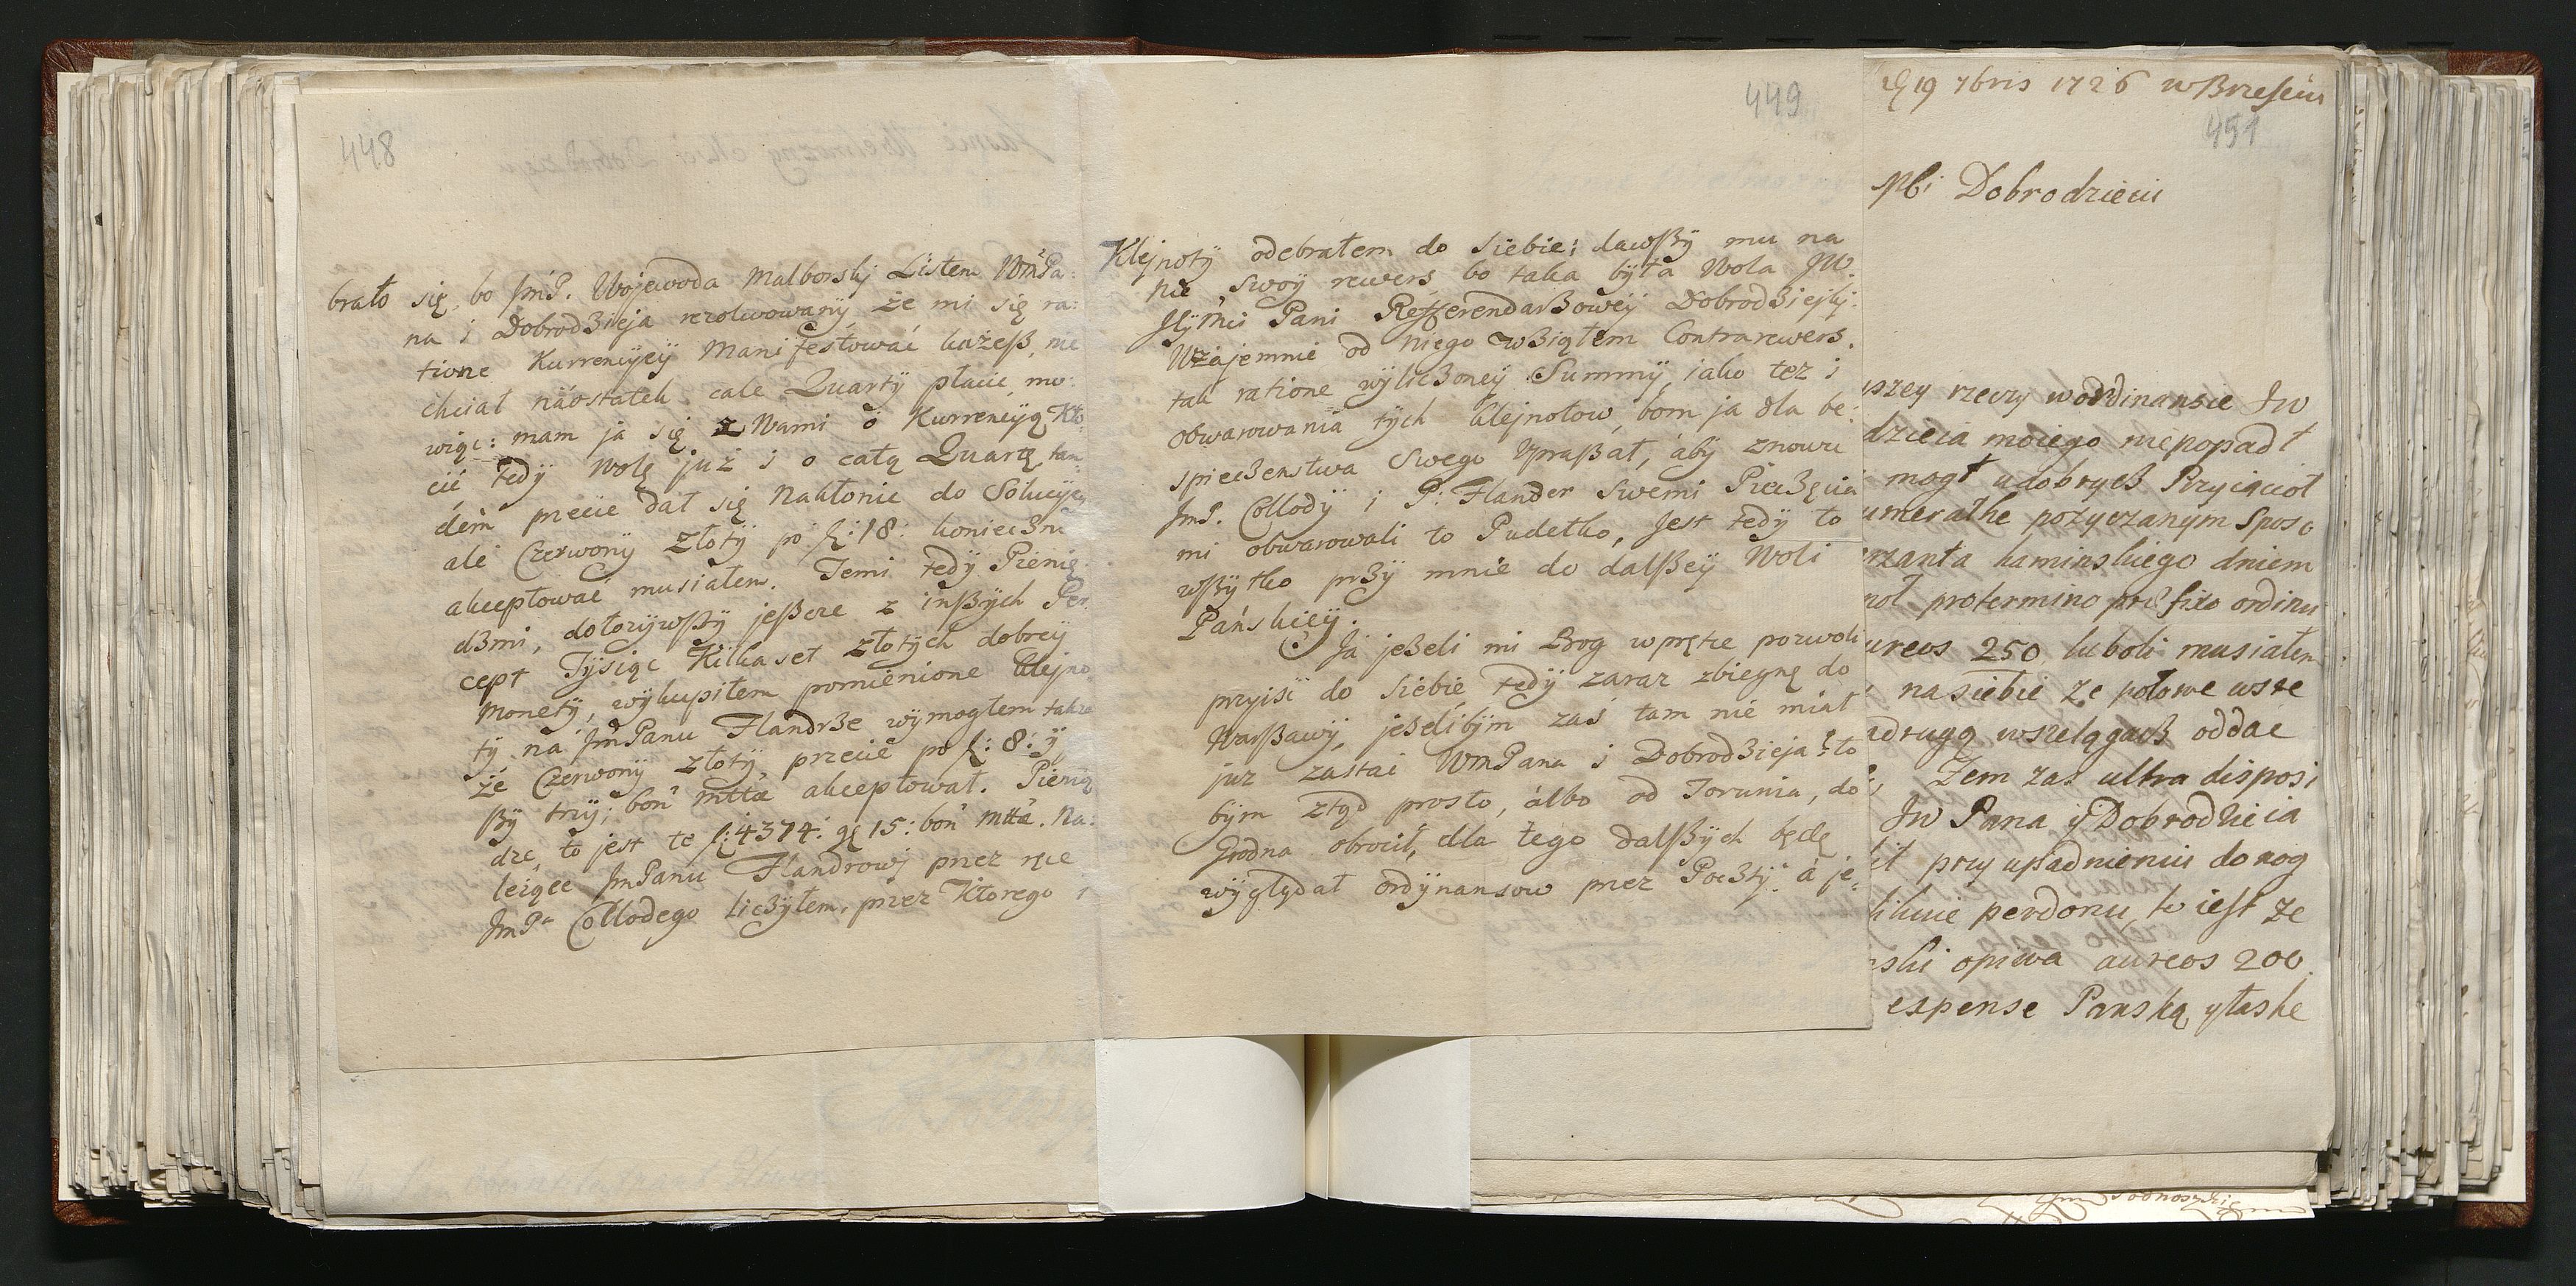 448
brało się, bo JmP. Wojewoda Malborskj Listem WmPa:
na i Dobrodzieja rezolwowanÿ, że mi się ra:
tione Kurrencÿeÿ Manifestować każeß, nie
chciał náostatek cale Quartÿ płacić, mo:
wiąc: mam ja się z Wami o Kurrencÿą Kło:
cić tedÿ Wolę już i o całą Quartę, tan:
dem przecie dał się Nakłonić do Solucÿeÿ
ale Czerwonÿ złotÿ po f: 18: koniecznie
akceptować musiałem. Temi tedÿ Pienię:
dzmi, dołożÿwßÿ jeßcze z inßÿch Per:
cept Tÿsiąc Kilkaset złotÿch dobreÿ
Monetÿ, wÿkupiłem pomienione Klejno:
tÿ, na JmPanu Flandrze wÿmogłem także
że Czerwonÿ złotÿ przecie po f: 8: ÿ
ßÿ trzÿ; bon mttæ akceptował. Pienią
dze, to jest te f: 4374: gę 15: bon mttæ. Na:
leżące JmPanu Flandrowj przez ręce
JmPa Collodego liczÿłem, przez Ktorego i
449
Klejnotÿ odebrałem do siebie; dawßÿ mu na
nie swoÿ rewers, bo taka bÿła Wola JW.
JeÿMci Pani Refferendarßoweÿ Dobrodziejkj.
Wzajemnie od niego wziąłem Contrarewers.
tak ratione wÿliczoneÿ Summÿ, iako też i
obwarowania tÿch klejnotow, bom ja dla be:
spieczenstwa swego Upraßał, ábÿ znowu
JmP. Collodÿ i P: Flander swemi Pieczęcia
mi obwarowali to Pudełko, Jest tedÿ to
wßÿtko przÿ mnie do dalßeÿ Woli
Páńskieÿ.
Ja jeżeli mi Bog wprętce pozwoli
przÿiść do siebie, tedÿ zaraz zbiegnę do
Warßawÿ, jeżelibÿm zaś tam nie miał
juz zastać WmPana i Dobrodzieja: to
bÿm ztąd prosto, álbo od Torunia, do
Grodna obrocił, dla tego dalßÿch będę
wÿglądał ordÿnansow przez Pocztÿ: á je:
19 7bris 1726 w Brześciu
451
Mći Dobrodzieiu
przey rzeczy wordinansie Jw
dzieia moiego niepopadł
mogł udobrych Przyiacioł
umeralne pożyczanym sposo
rzanta kaminskiego dniem
protermino præfixo ordinu
ureos 250, luboli musiałem
na siebie ze połowe wsre
adrugą wszelągach oddac
Zem zas ultra disposi
Jw Pana y Dobrodzieia
przy upadnieniu do nog
perdonu, to iest ze
ski opiwa aureos 200
expense Panską y łaske